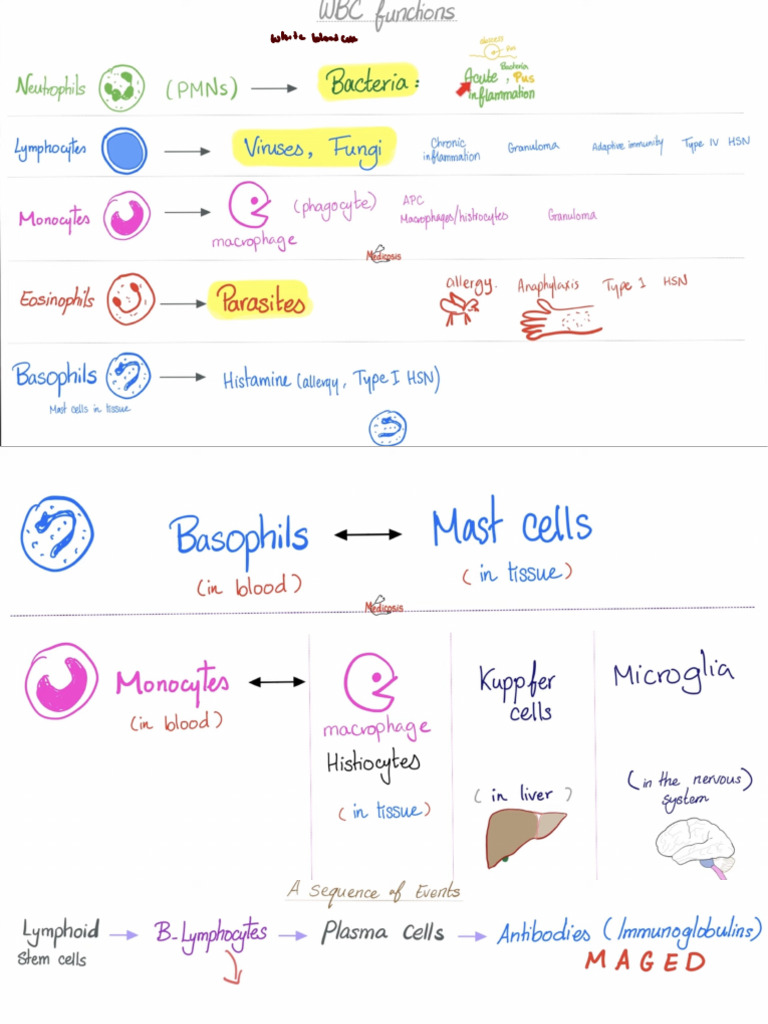 WBC functions
White blood cell
abscess
Pus
Neutrophils (PMNs) → Bacteria:
Bacteria
Acute, Pus
inflammation
Lymphocytes → Viruses, Fungi
Chronic
inflammation
Granuloma
Adaptive immunity
Type IV HSN
Monocytes → (phagocyte)
macrophage
APC
Macrophages/histiocytes
Granuloma
Medicosis
Eosinophils → Parasites
allergy. Anaphylaxis Type I HSN
Basophils → Histamine (allergy, Type I HSN)
Mast cells in tissue
Basophils ↔ Mast cells
(in blood) (in tissue)
Medicosis
Monocytes ↔
(in blood)
macrophage
Histiocytes
(in tissue)
Kuppfer
cells
(in liver)
Microglia
(in the nervous)
system
A Sequence of Events
Lymphoid → B-Lymphocytes → Plasma Cells → Antibodies (Immunoglobulins)
Stem cells
MAGED